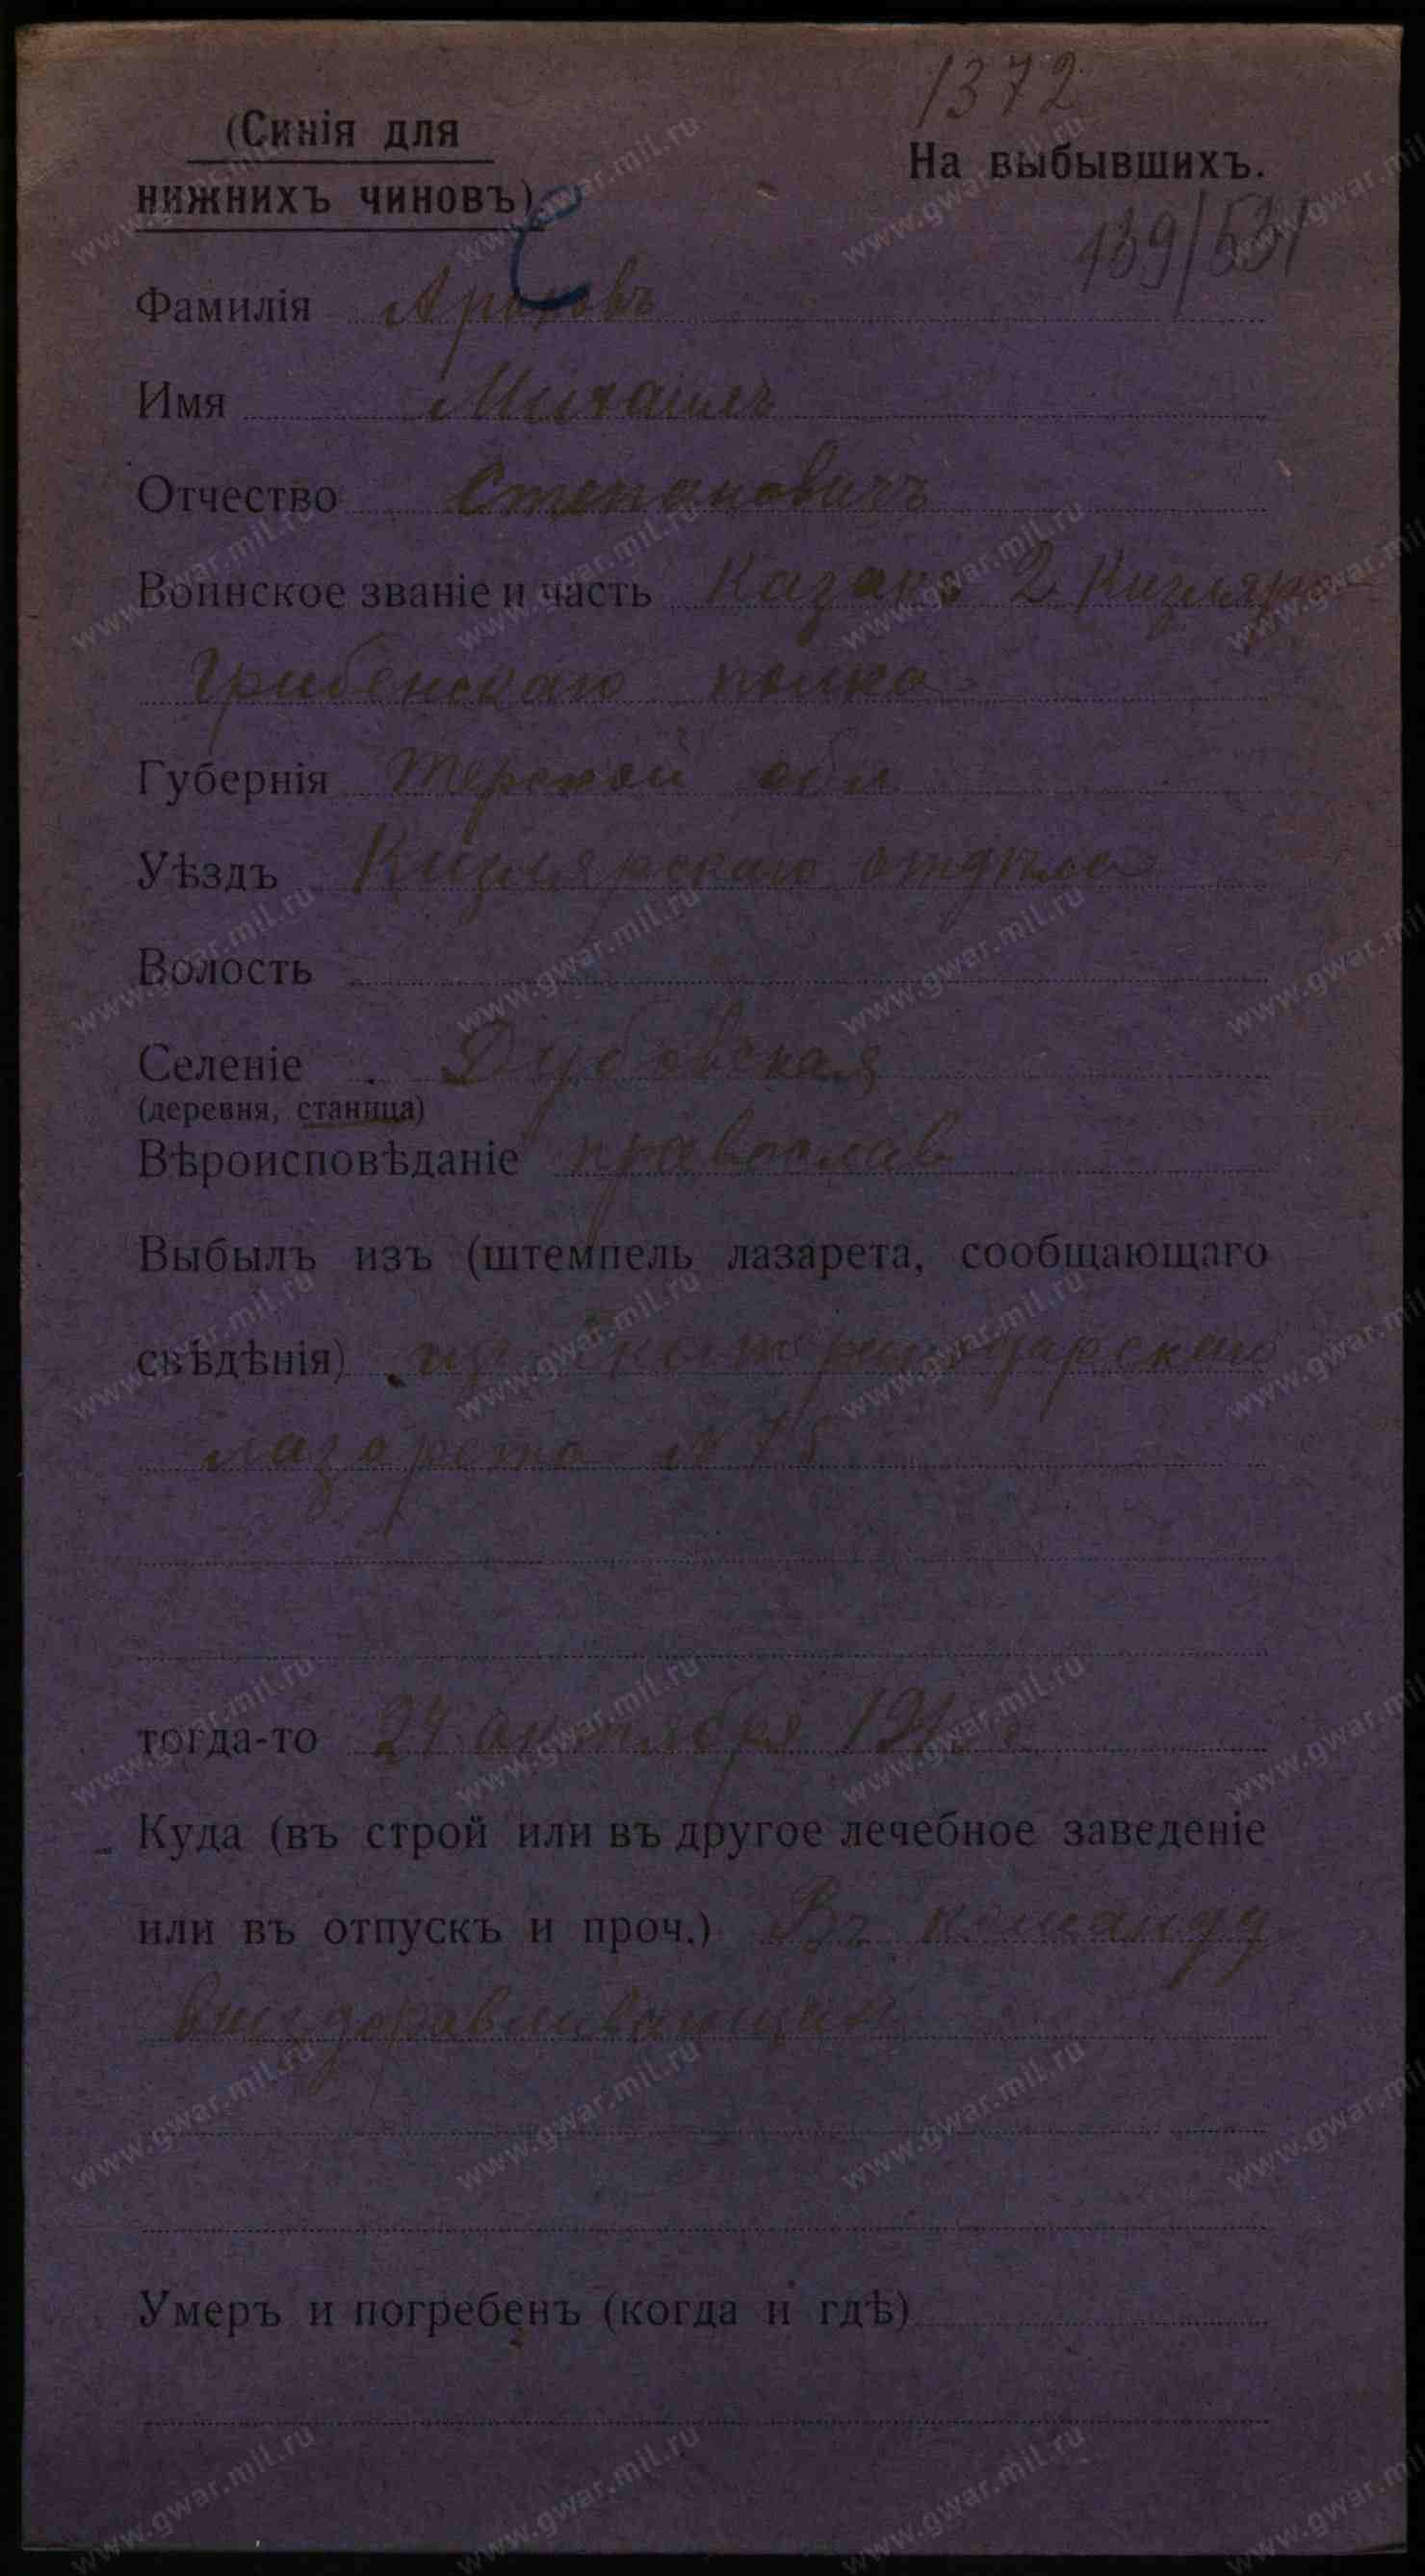 1372
(Синія для
На выбывшихъ.
нижнихъ чиновъ)
139/531
Фамилія
Имя Михаилъ
Отчество Степановичъ
Воинское званіе и часть Казакъ 2 Кизляро
Гребенскаго полка
Губернія Терской обл
Уѣздъ Кизлярскаго отдѣла
Волость
Селеніе Дубовская
(деревня, станица)
Вѣроисповѣданіе православ
Выбылъ изъ (штемпель лазарета, сообщающаго
свѣдѣнія) изъ Екатеринодарскаго
лазарета №
тогда-то октября
Куда (въ строй или въ другое лечебное заведеніе
или въ отпускъ и проч.) Въ команду
выздоравливающихъ
Умеръ и погребенъ (когда и гдѣ)